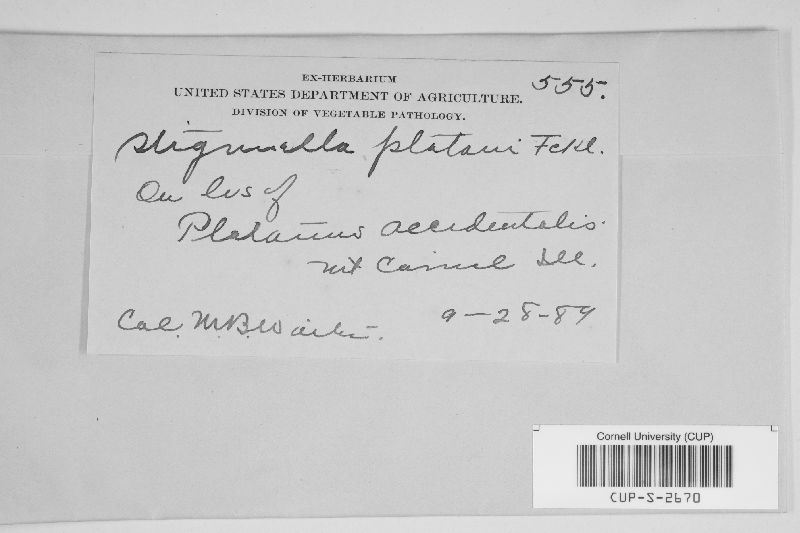 EX-HERBARIUM
555.
UNITED STATES DEPARTMENT OF AGRICULTURE.
DIVISION OF VEGETABLE PATHOLOGY.
Stigmella platani Fckl.
On lvs of
Platanus occidentalis.
Mt Carmel Ill.
Col. M.B. Waite.
9-28-89
Cornell University (CUP)
CUP-S-2670